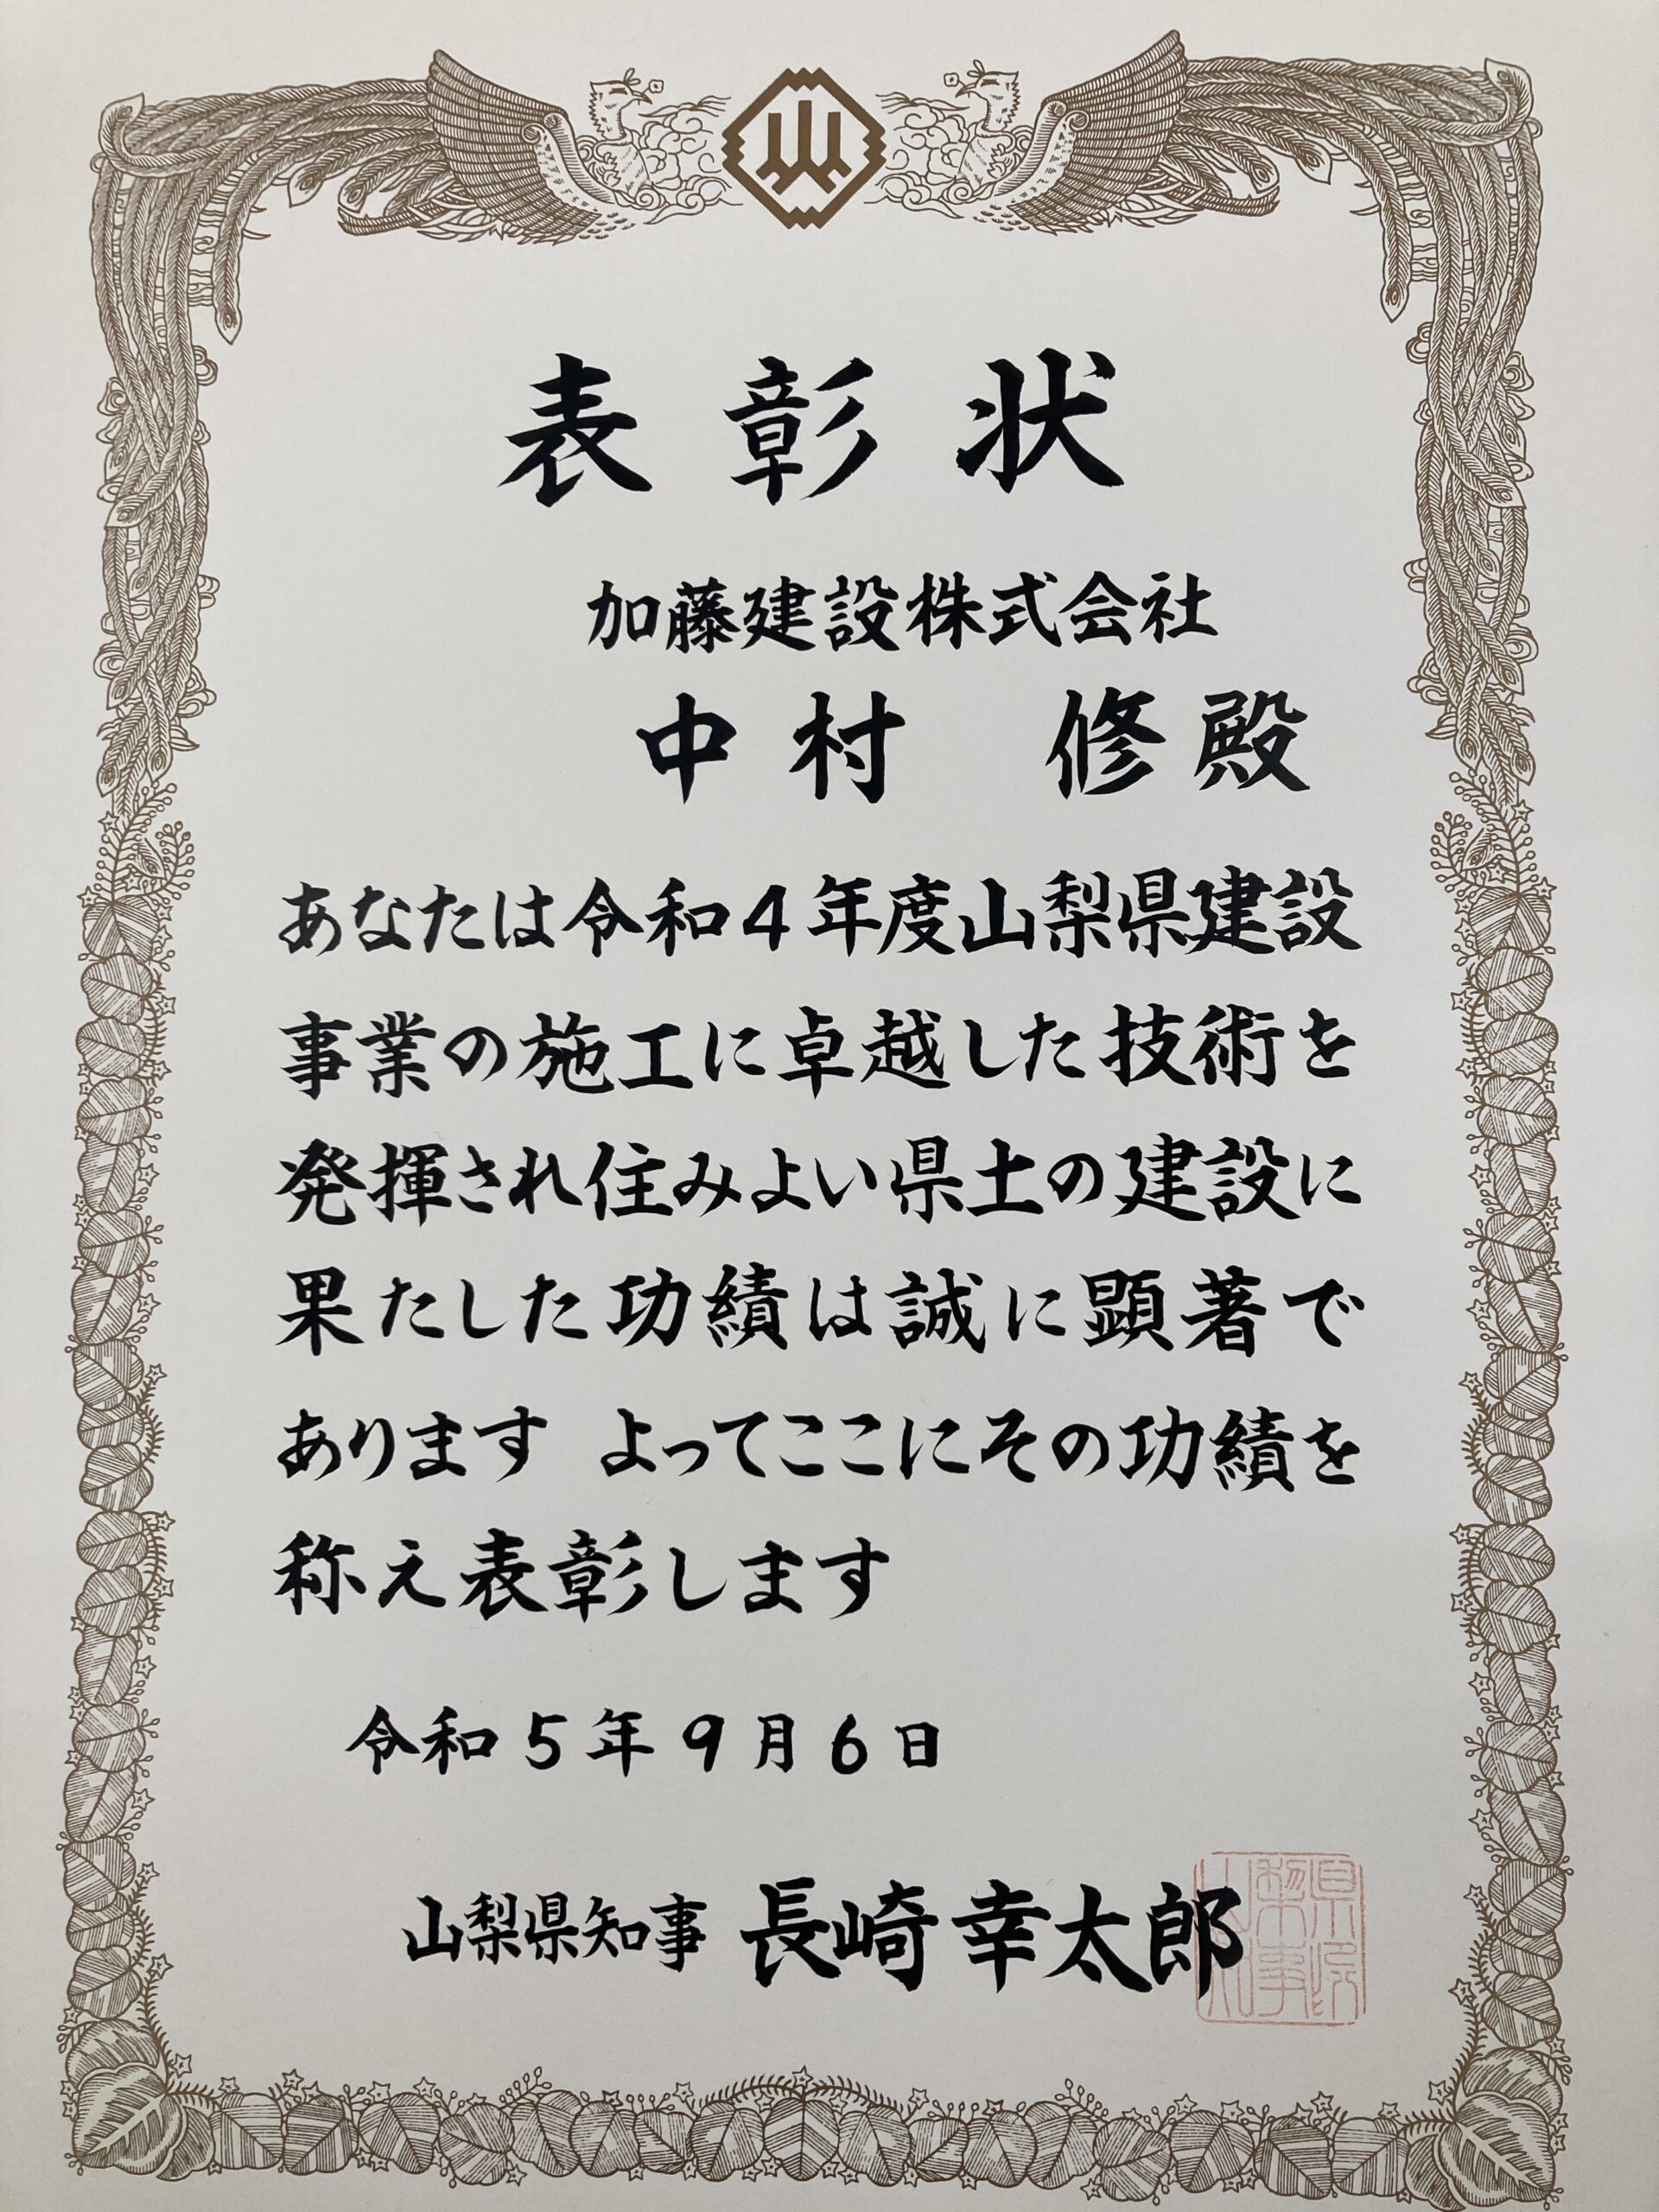 表彰状
加藤建設株式会社
中村 修殿
あなたは令和4年度山梨県建設
事業の施工に卓越した技術を
発揮され住みよい県土の建設に
果たした功績は誠に顕著で
あります よってここにその功績を
称え表彰します
令和5年9月6日
山梨県知事 長崎幸太郎